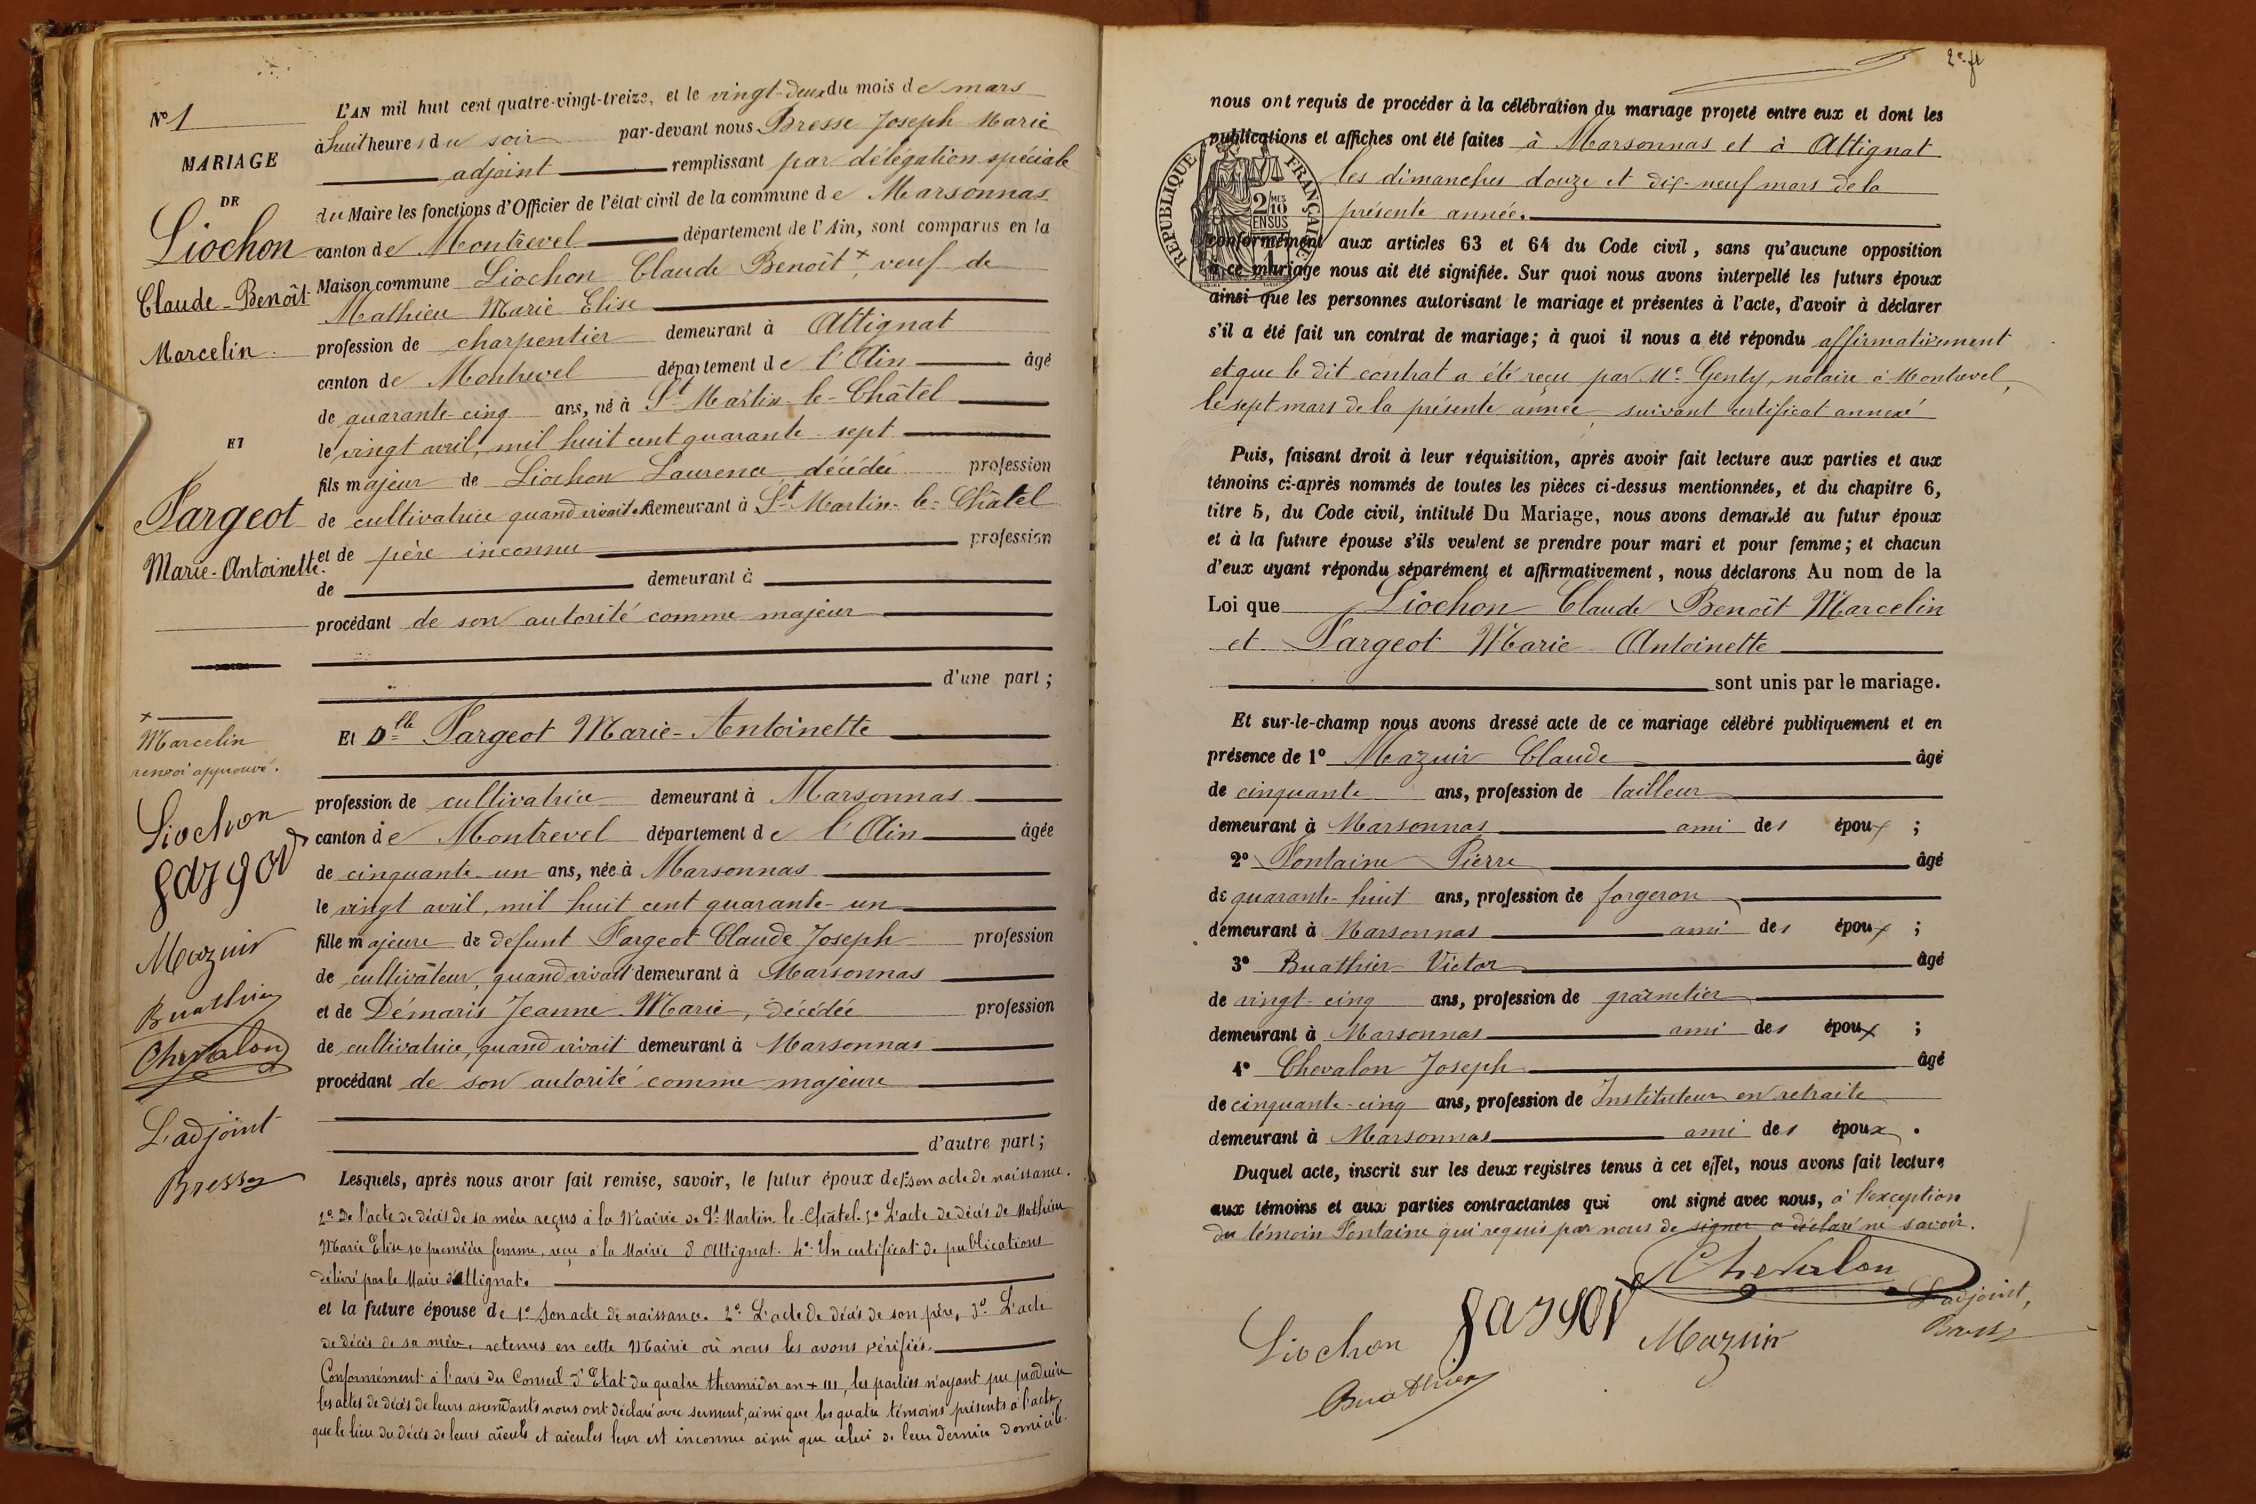 Nº 1
MARIAGE
DE
Liochon
Claude-Benoît
Marcelin.
ET
Fargeot
Marie-Antoinette.
+
Marcelin
renvoi approuvé.
Liochon
fargot
Mazuir
Buathier
Chevalon
L'adjoint
Bresse
L'AN mil huit cent quatre-vingt-treize, et le vingt-deux du mois de mars
à huit heures du soir par-devant nous Bresse Joseph Marie
adjoint remplissant par délégation spéciale
du Maire les fonctions d'Officier de l'état civil de la commune de Marsonnas
canton de Montrevel département de l'Ain, sont comparus en la
Maison commune Liochon Claude Benoît +, veuf de
Mathieu Marie Elise
profession de charpentier demeurant à Attignat
canton de Montrevel département de l'Ain âgé
de quarante-cinq ans, né à St Martin-le-Châtel
le vingt avril, mil huit cent quarante-sept
fils majeur de Liochon Laurence, décédée profession
de cultivatrice quand vivait demeurant à St Martin-le-Châtel
et de père inconnu profession
de demeurant à
procédant de son autorité comme majeur
d'une part;
Et Dlle Fargeot Marie-Antoinette
profession de cultivatrice demeurant à Marsonnas
canton de Montrevel département de l'Ain âgée
de cinquante-un ans, née à Marsonnas
le vingt avril, mil huit cent quarante-un
fille majeure de défunt Fargeot Claude Joseph profession
de cultivateur, quand vivait demeurant à Marsonnas
et de Démaris Jeanne-Marie, décédée profession
de cultivatrice, quand vivait demeurant à Marsonnas
procédant de son autorité comme majeure
d'autre part;
Lesquels, après nous avoir fait remise, savoir, le futur époux de 1º son acte de naissance.
2º de l'acte de décès de sa mère reçus à la Mairie de St Martin-le-Châtel. 3º L'acte de décès de Mathieu
Marie Elise sa première femme, reçu à la Mairie d'Attignat. 4º Un certificat de publications
délivré par le Maire d'Attignat.
et la future épouse de 1º Son acte de naissance. 2º L'acte de décès de son père, 3º L'acte
de décès de sa mère, retenus en cette Mairie où nous les avons vérifiés.
Conformément à l'avis du Conseil d'Etat du quatre thermidor an XIII, les parties n'ayant pu produire
les actes de décès de leurs ascendants nous ont déclaré avec serment, ainsi que les quatre témoins présents à l'acte,
que le lieu du décès de leurs aïeuls et aïeules leur est inconnu ainsi que celui de leur dernier domicile.
2e ft
nous ont requis de procéder à la célébration du mariage projeté entre eux et dont les
publications et affiches ont été faites à Marsonnas et à Attignat
les dimanches douze et dix-neuf mars de la
présente année.
RÉPUBLIQUE FRANÇAISE
2/10 MES
EN SUS
conformément aux articles 63 et 64 du Code civil, sans qu'aucune opposition
à ce mariage nous ait été signifiée. Sur quoi nous avons interpellé les futurs époux
ainsi que les personnes autorisant le mariage et présentes à l'acte, d'avoir à déclarer
s'il a été fait un contrat de mariage; à quoi il nous a été répondu affirmativement
et que le dit contrat a été reçu par Me Genty, notaire à Montrevel,
le sept mars de la présente année, suivant certificat annexé
Puis, faisant droit à leur réquisition, après avoir fait lecture aux parties et aux
témoins ci-après nommés de toutes les pièces ci-dessus mentionnées, et du chapitre 6,
titre 5, du Code civil, intitulé Du Mariage, nous avons demandé au futur époux
et à la future épouse s'ils veulent se prendre pour mari et pour femme; et chacun
d'eux ayant répondu séparément et affirmativement, nous déclarons Au nom de la
Loi que Liochon Claude Benoît Marcelin
et Fargeot Marie Antoinette
sont unis par le mariage.
Et sur-le-champ nous avons dressé acte de ce mariage célébré publiquement et en
présence de 1º Mazuir Claude âgé
de cinquante ans, profession de tailleur
demeurant à Marsonnas ami des époux;
2º Fontaine Pierre âgé
de quarante-huit ans, profession de forgeron
demeurant à Marsonnas ami des époux;
3º Buathier Victor âgé
de vingt-cinq ans, profession de grainetier
demeurant à Marsonnas ami des époux;
4º Chevalon Joseph âgé
de cinquante-cinq ans, profession de Instituteur en retraite
demeurant à Marsonnas ami des époux.
Duquel acte, inscrit sur les deux registres tenus à cet effet, nous avons fait lecture
aux témoins et aux parties contractantes qui ont signé avec nous, à l'exception
du témoin Fontaine qui requis par nous de signer a déclaré ne savoir.
Chevalon
L'adjoint,
Bresse
Liochon
fargot
Mazuir
Buathier